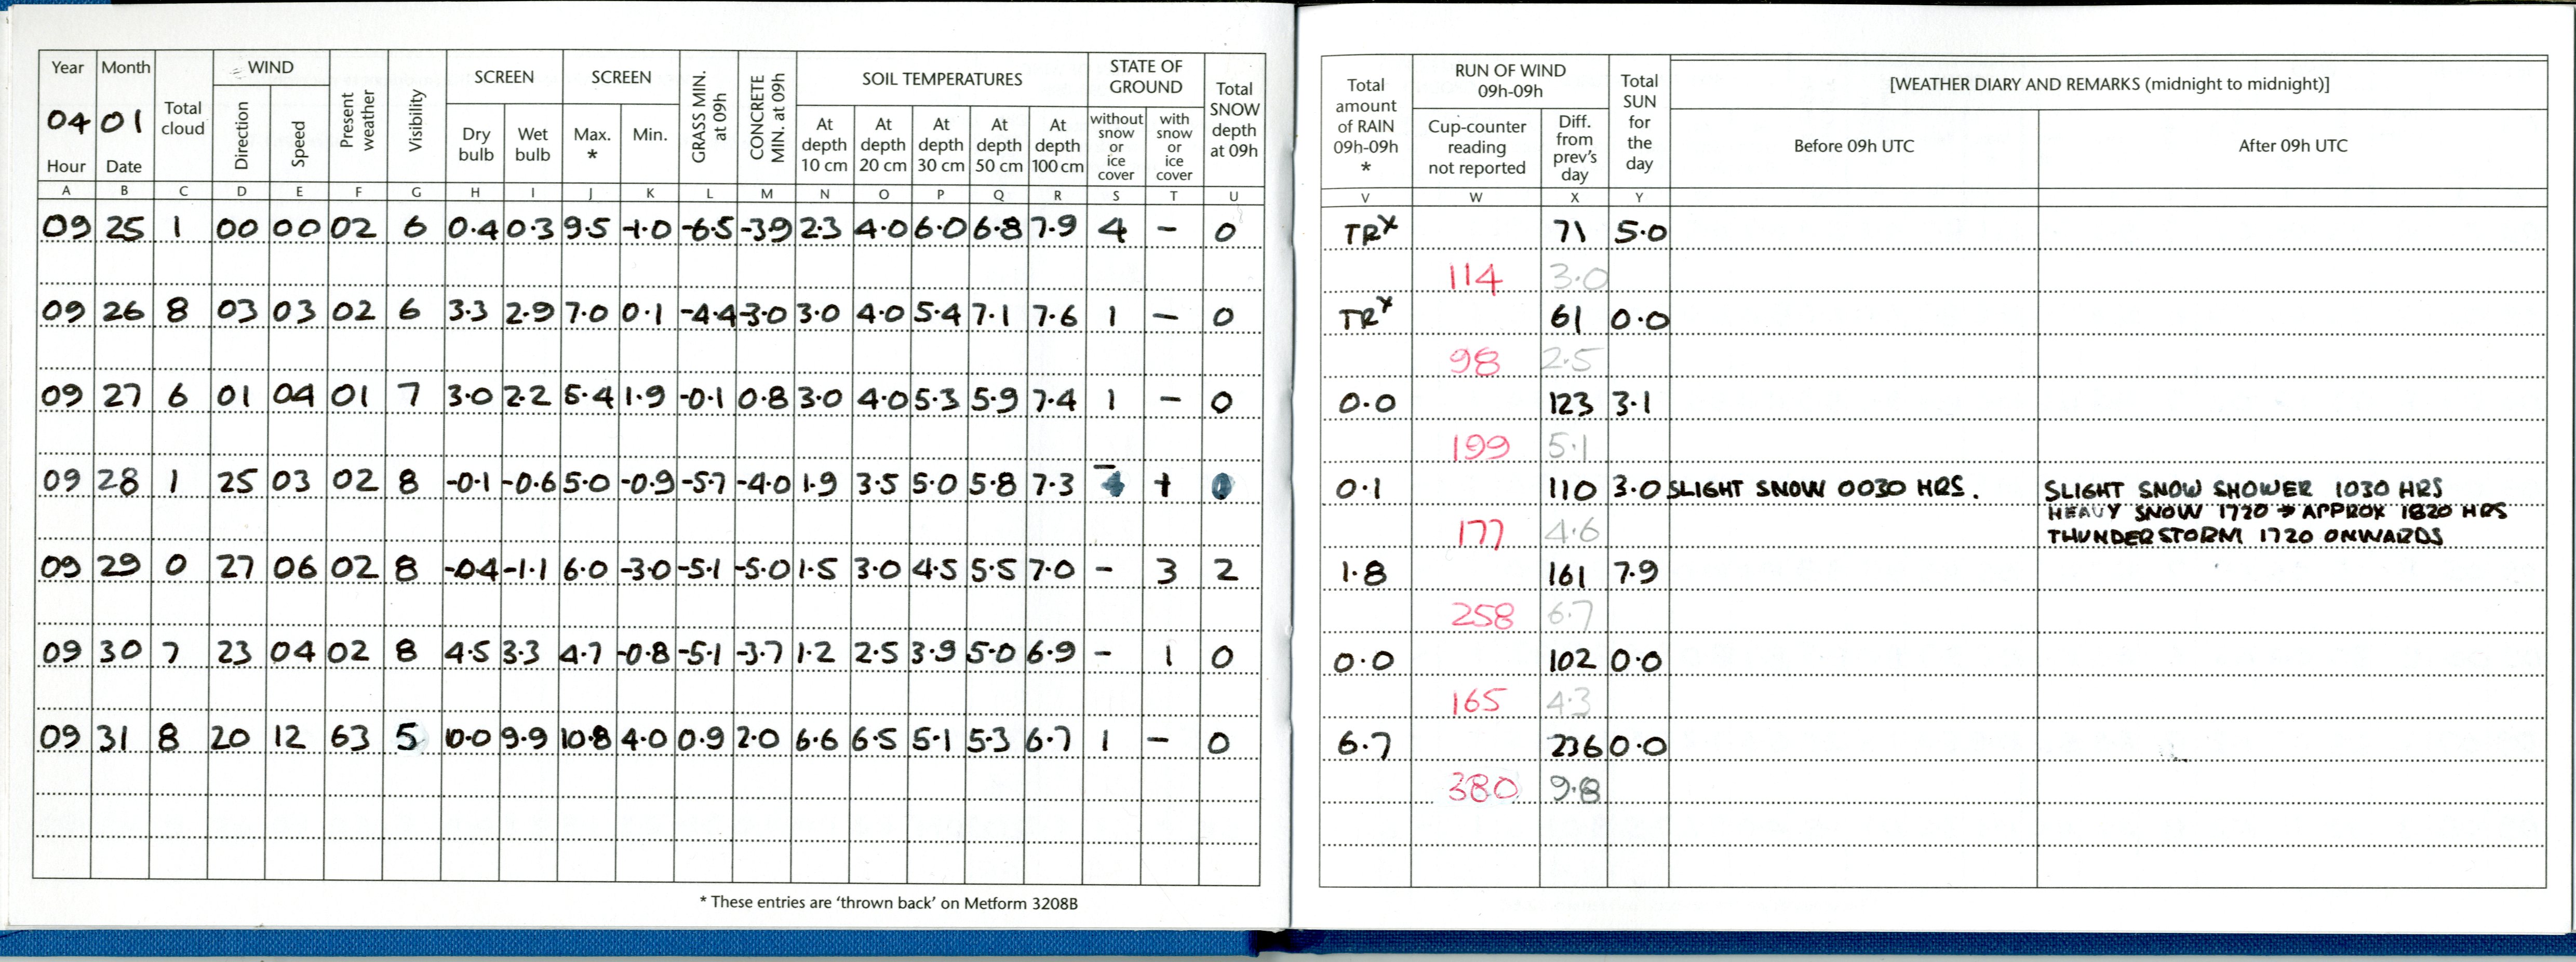 Year Month Total cloud WIND Present weather Visibility SCREEN SCREEN GRASS MIN. at 09h CONCRETE MIN. at 09h SOIL TEMPERATURES STATE OF GROUND Total SNOW depth at 09h
04 01 Direction Speed Dry bulb Wet bulb Max. * Min. At depth 10 cm At depth 20 cm At depth 30 cm At depth 50 cm At depth 100 cm without snow or ice cover with snow or ice cover
Hour Date
A B C D E F G H I J K L M N O P Q R S T U
09 25 1 00 00 02 6 0.4 0.3 9.5 -1.0 -6.5 -3.9 2.3 4.0 6.0 6.8 7.9 4 - 0
09 26 8 03 03 02 6 3.3 2.9 7.0 0.1 -4.4 -3.0 3.0 4.0 5.4 7.1 7.6 1 - 0
09 27 6 01 04 01 7 3.0 2.2 5.4 1.9 -0.1 0.8 3.0 4.0 5.3 5.9 7.4 1 - 0
09 28 1 25 03 02 8 -0.1 -0.6 5.0 -0.9 -5.7 -4.0 1.9 3.5 5.0 5.8 7.3 -
09 29 0 27 06 02 8 -0.4 -1.1 6.0 -3.0 -5.1 -5.0 1.5 3.0 4.5 5.5 7.0 - 3 2
09 30 7 23 04 02 8 4.5 3.3 4.7 -0.8 -5.1 -3.7 1.2 2.5 3.9 5.0 6.9 - 1 0
09 31 8 20 12 63 5 10.0 9.9 10.8 4.0 0.9 2.0 6.6 6.5 5.1 5.3 6.7 1 - 0
* These entries are 'thrown back' on Metform 3208B
Total amount of RAIN 09h-09h * RUN OF WIND 09h-09h Total SUN for the day [WEATHER DIARY AND REMARKS (midnight to midnight)]
Cup-counter reading not reported Diff. from prev's day Before 09h UTC After 09h UTC
V W X Y
TRX 71 5.0
114 3.0
TRX 61 0.0
98 2.5
0.0 123 3.1
199 5.1
0.1 110 3.0 SLIGHT SNOW 0030 HRS. SLIGHT SNOW SHOWER 1030 HRS
HEAVY SNOW 1720 → APPROX 1820 HRS
177 4.6 THUNDERSTORM 1720 ONWARDS
1.8 161 7.9
258 6.7
0.0 102 0.0
165 4.3
6.7 236 0.0
380 9.8